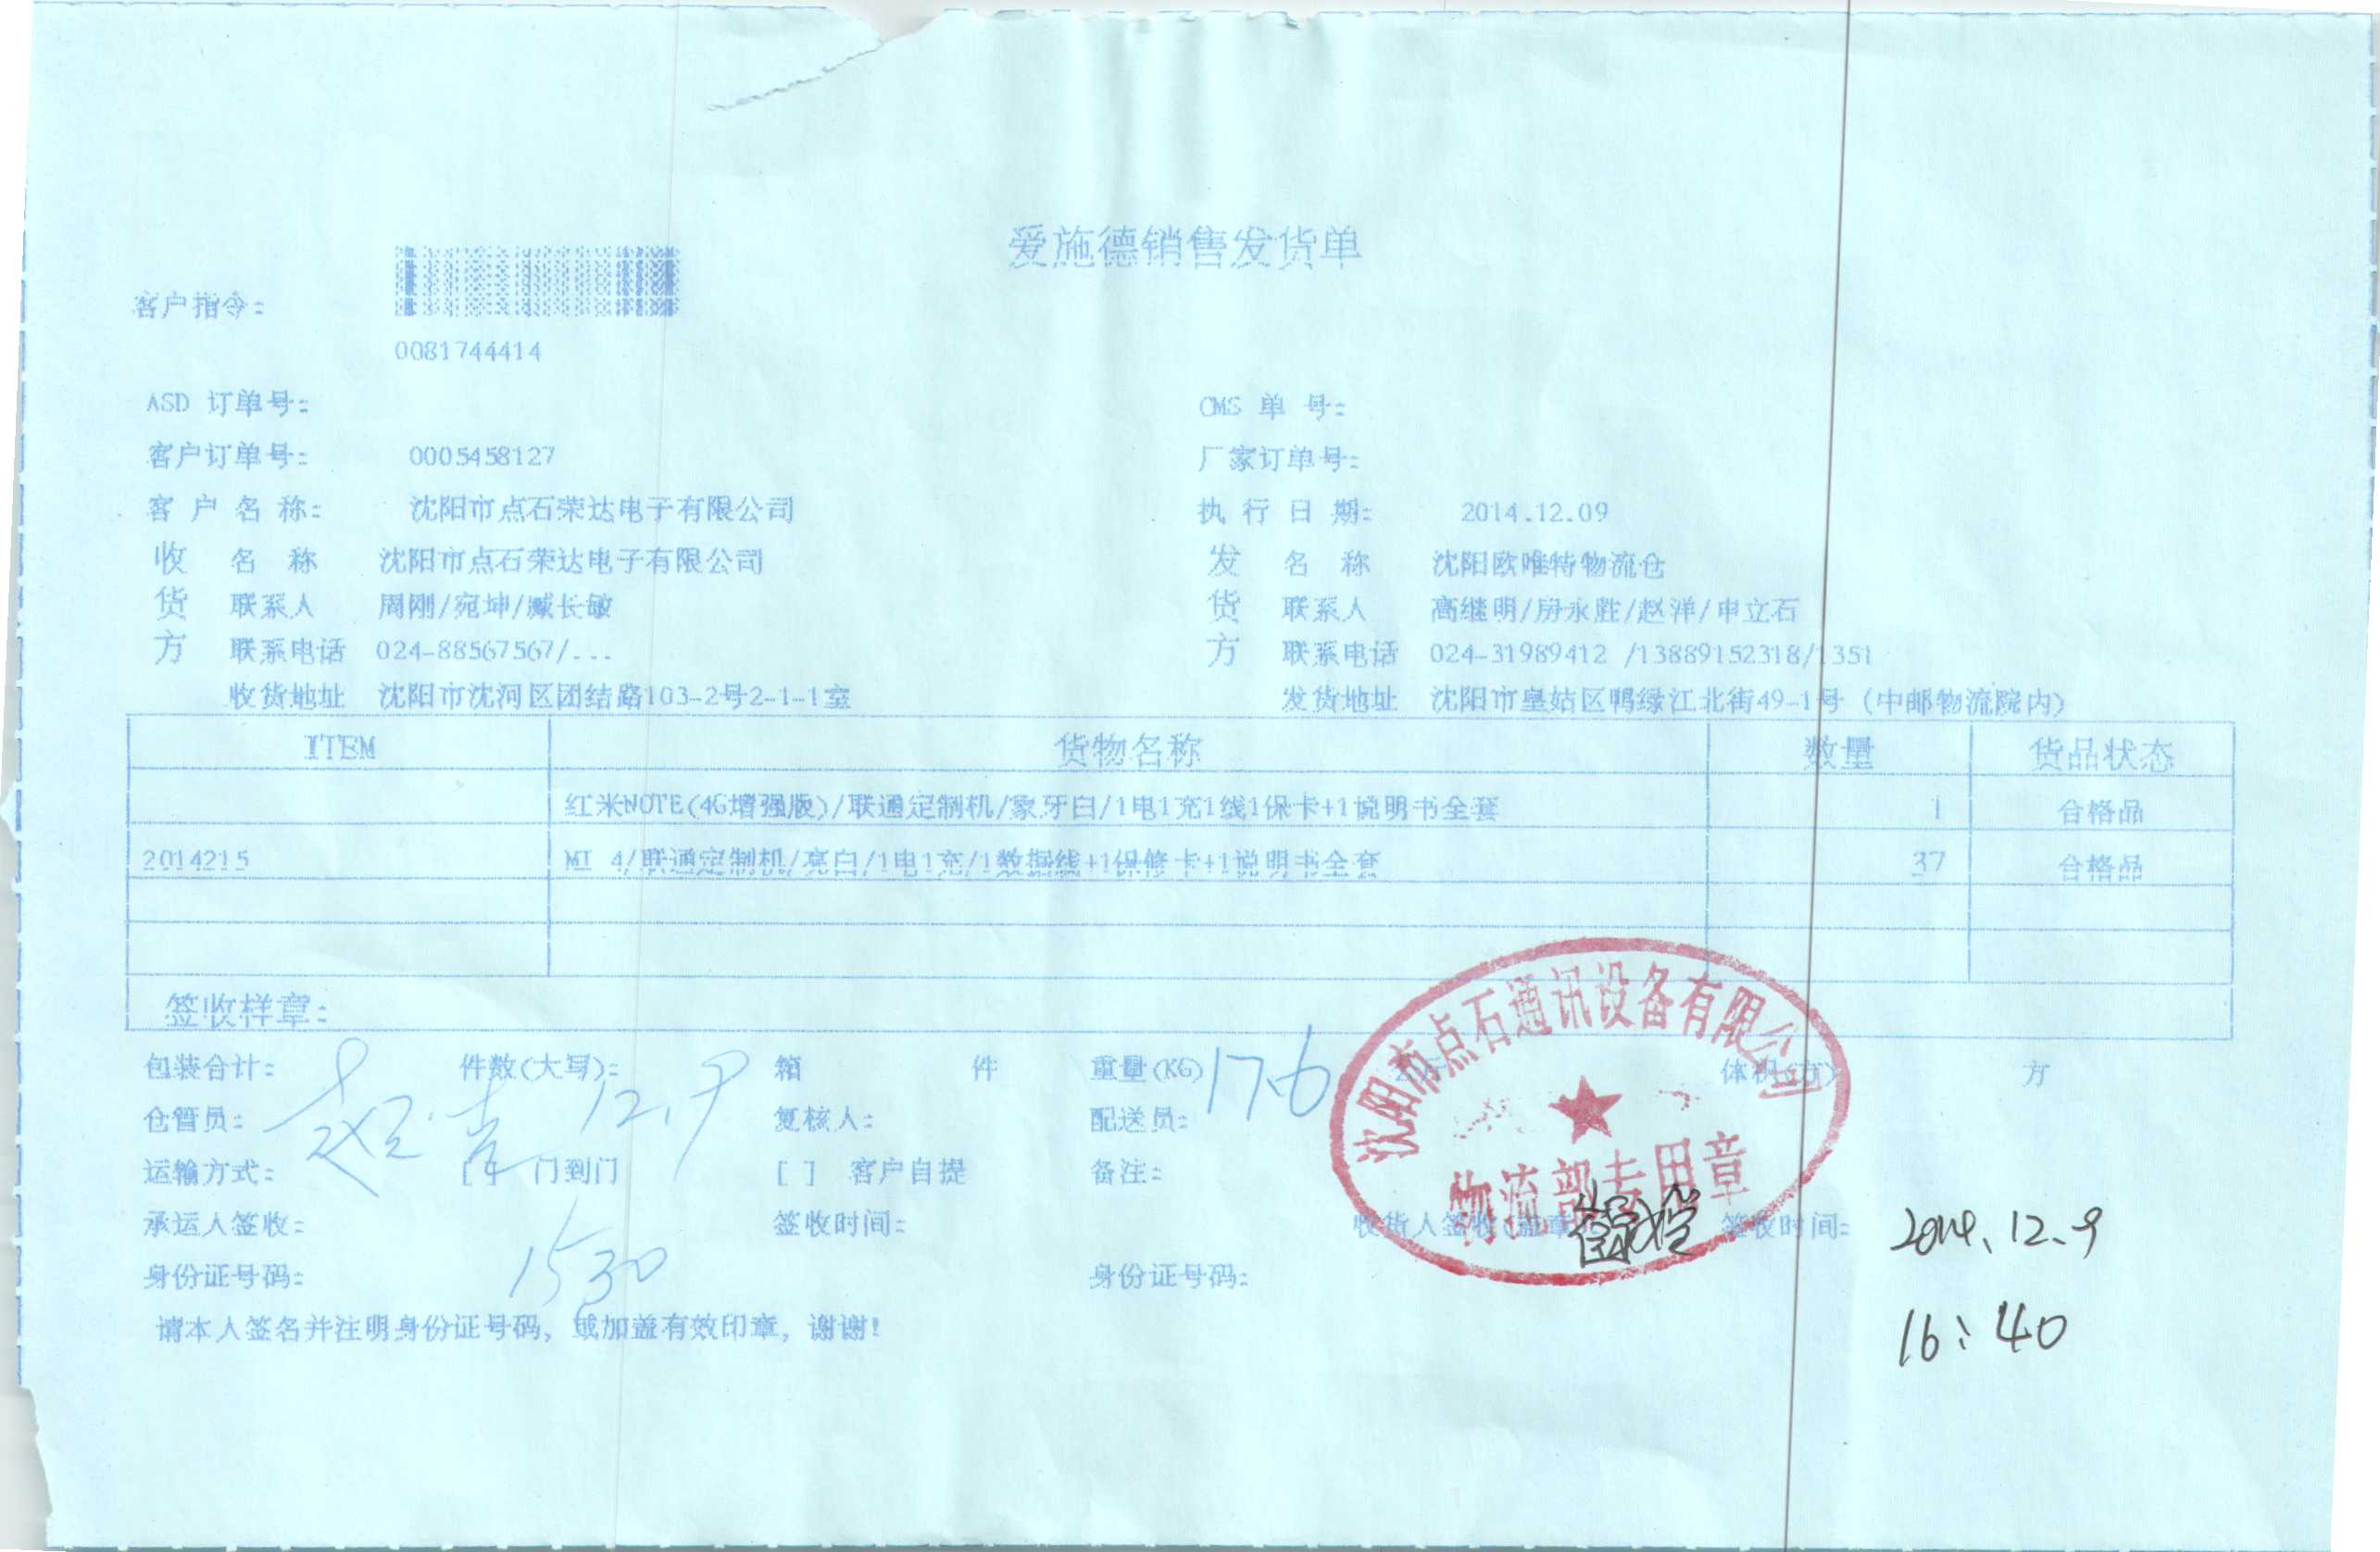 爱施德销售发货单
客户指令:
0081744414
ASD 订单号: CMS 单 号:
客户订单号: 0005458127 厂家订单号:
客 户 名 称: 沈阳市点石荣达电子有限公司 执 行 日 期: 2014.12.09
收 名 称 沈阳市点石荣达电子有限公司 发 名 称 沈阳欧唯特物流仓
货 联系人 周刚/宛坤/臧长敏 货 联系人 高继明/房永胜/赵洋/申立石
方 联系电话 024-88567567/... 方 联系电话 024-31989412 /13889152318/1351
收货地址 沈阳市沈河区团结路103-2号2-1-1室 发货地址 沈阳市皇姑区鸭绿江北街49-1号 (中邮物流院内)
ITEM 货物名称 数量 货品状态
红米NOTE(4G增强版)/联通定制机/象牙白/1电1充1线1保卡+1说明书全套 1 合格品
2014215 MI 4/联通定制机/亮白/1电1充/1数据线+1保修卡+1说明书全套 37 合格品
签收样章:
沈阳市点石通讯设备有限公司
物流部专用章
包装合计: 件数(大写): 箱 件 重量(KG) 17.6 体积(方) 方
12.9
仓管员: 复核人: 配送员:
运输方式: [ ] 门到门 [ ] 客户自提 备注:
承运人签收: 签收时间: 收货人签收(盖章) 签收时间: 2014.12.9
1530
16:40
身份证号码: 身份证号码:
请本人签名并注明身份证号码, 或加盖有效印章, 谢谢!